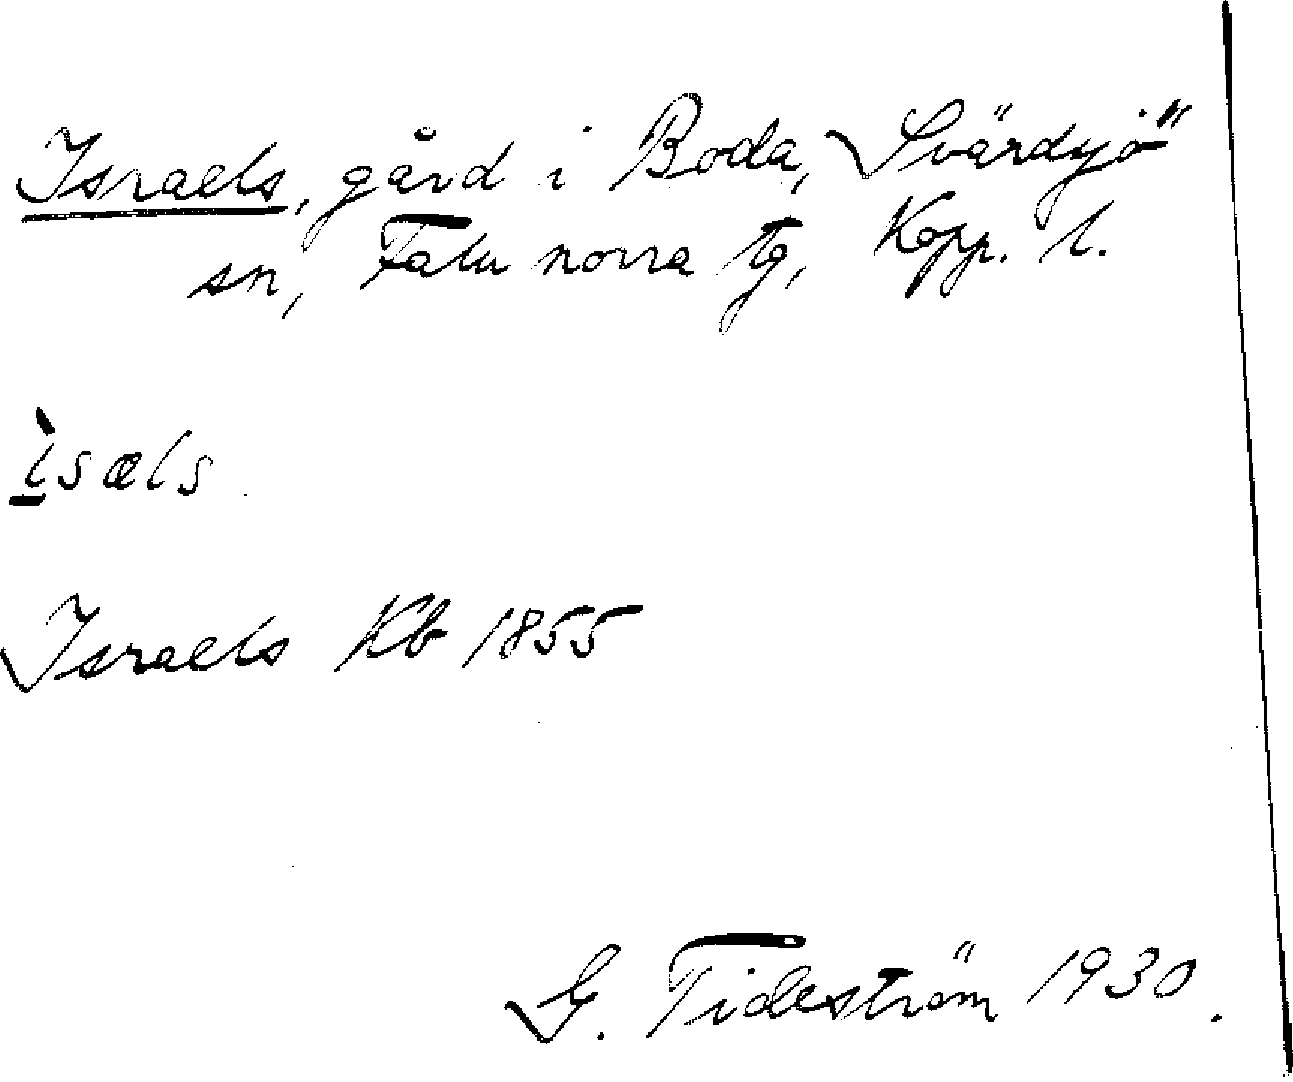 Israels, gård i Boda, Svärdsjö
sn, Falu norra tg, Kopp. l.
ìsæls
Israels Kb 1855
G. Tideström 1930.